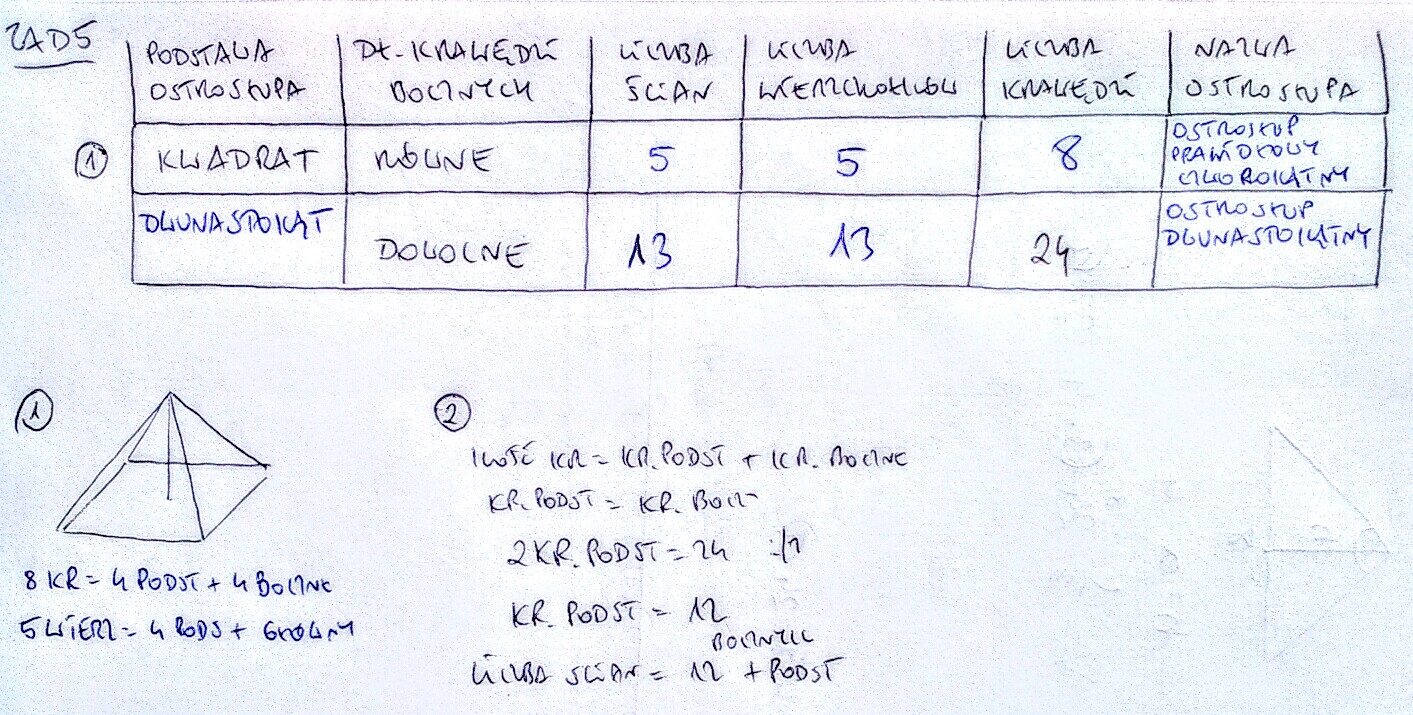 ZAD5
PODSTAWA OSTROSŁUPA
DŁ. KRAWĘDZI BOCZNYCH
LICZBA ŚCIAN
LICZBA WIERZCHOŁKÓW
LICZBA KRAWĘDZI
NAZWA OSTROSŁUPA
1 KWADRAT RÓWNE 5 5 8 OSTROSŁUP PRAWIDŁOWY CZWOROKĄTNY
DWUNASTOKĄT DOWOLNE 13 13 24 OSTROSŁUP DWUNASTOKĄTNY
1
8 KR = 4 PODST + 4 BOCZNE
5 WIERZ = 4 PODS + GŁÓWNY
2
ILOŚĆ KR = KR. PODST + KR. BOCZNE
KR. PODST = KR. BOCZ
2 KR. PODST = 24 :/2
KR. PODST = 12
BOCZNYCH
LICZBA ŚCIAN = 12 + PODST